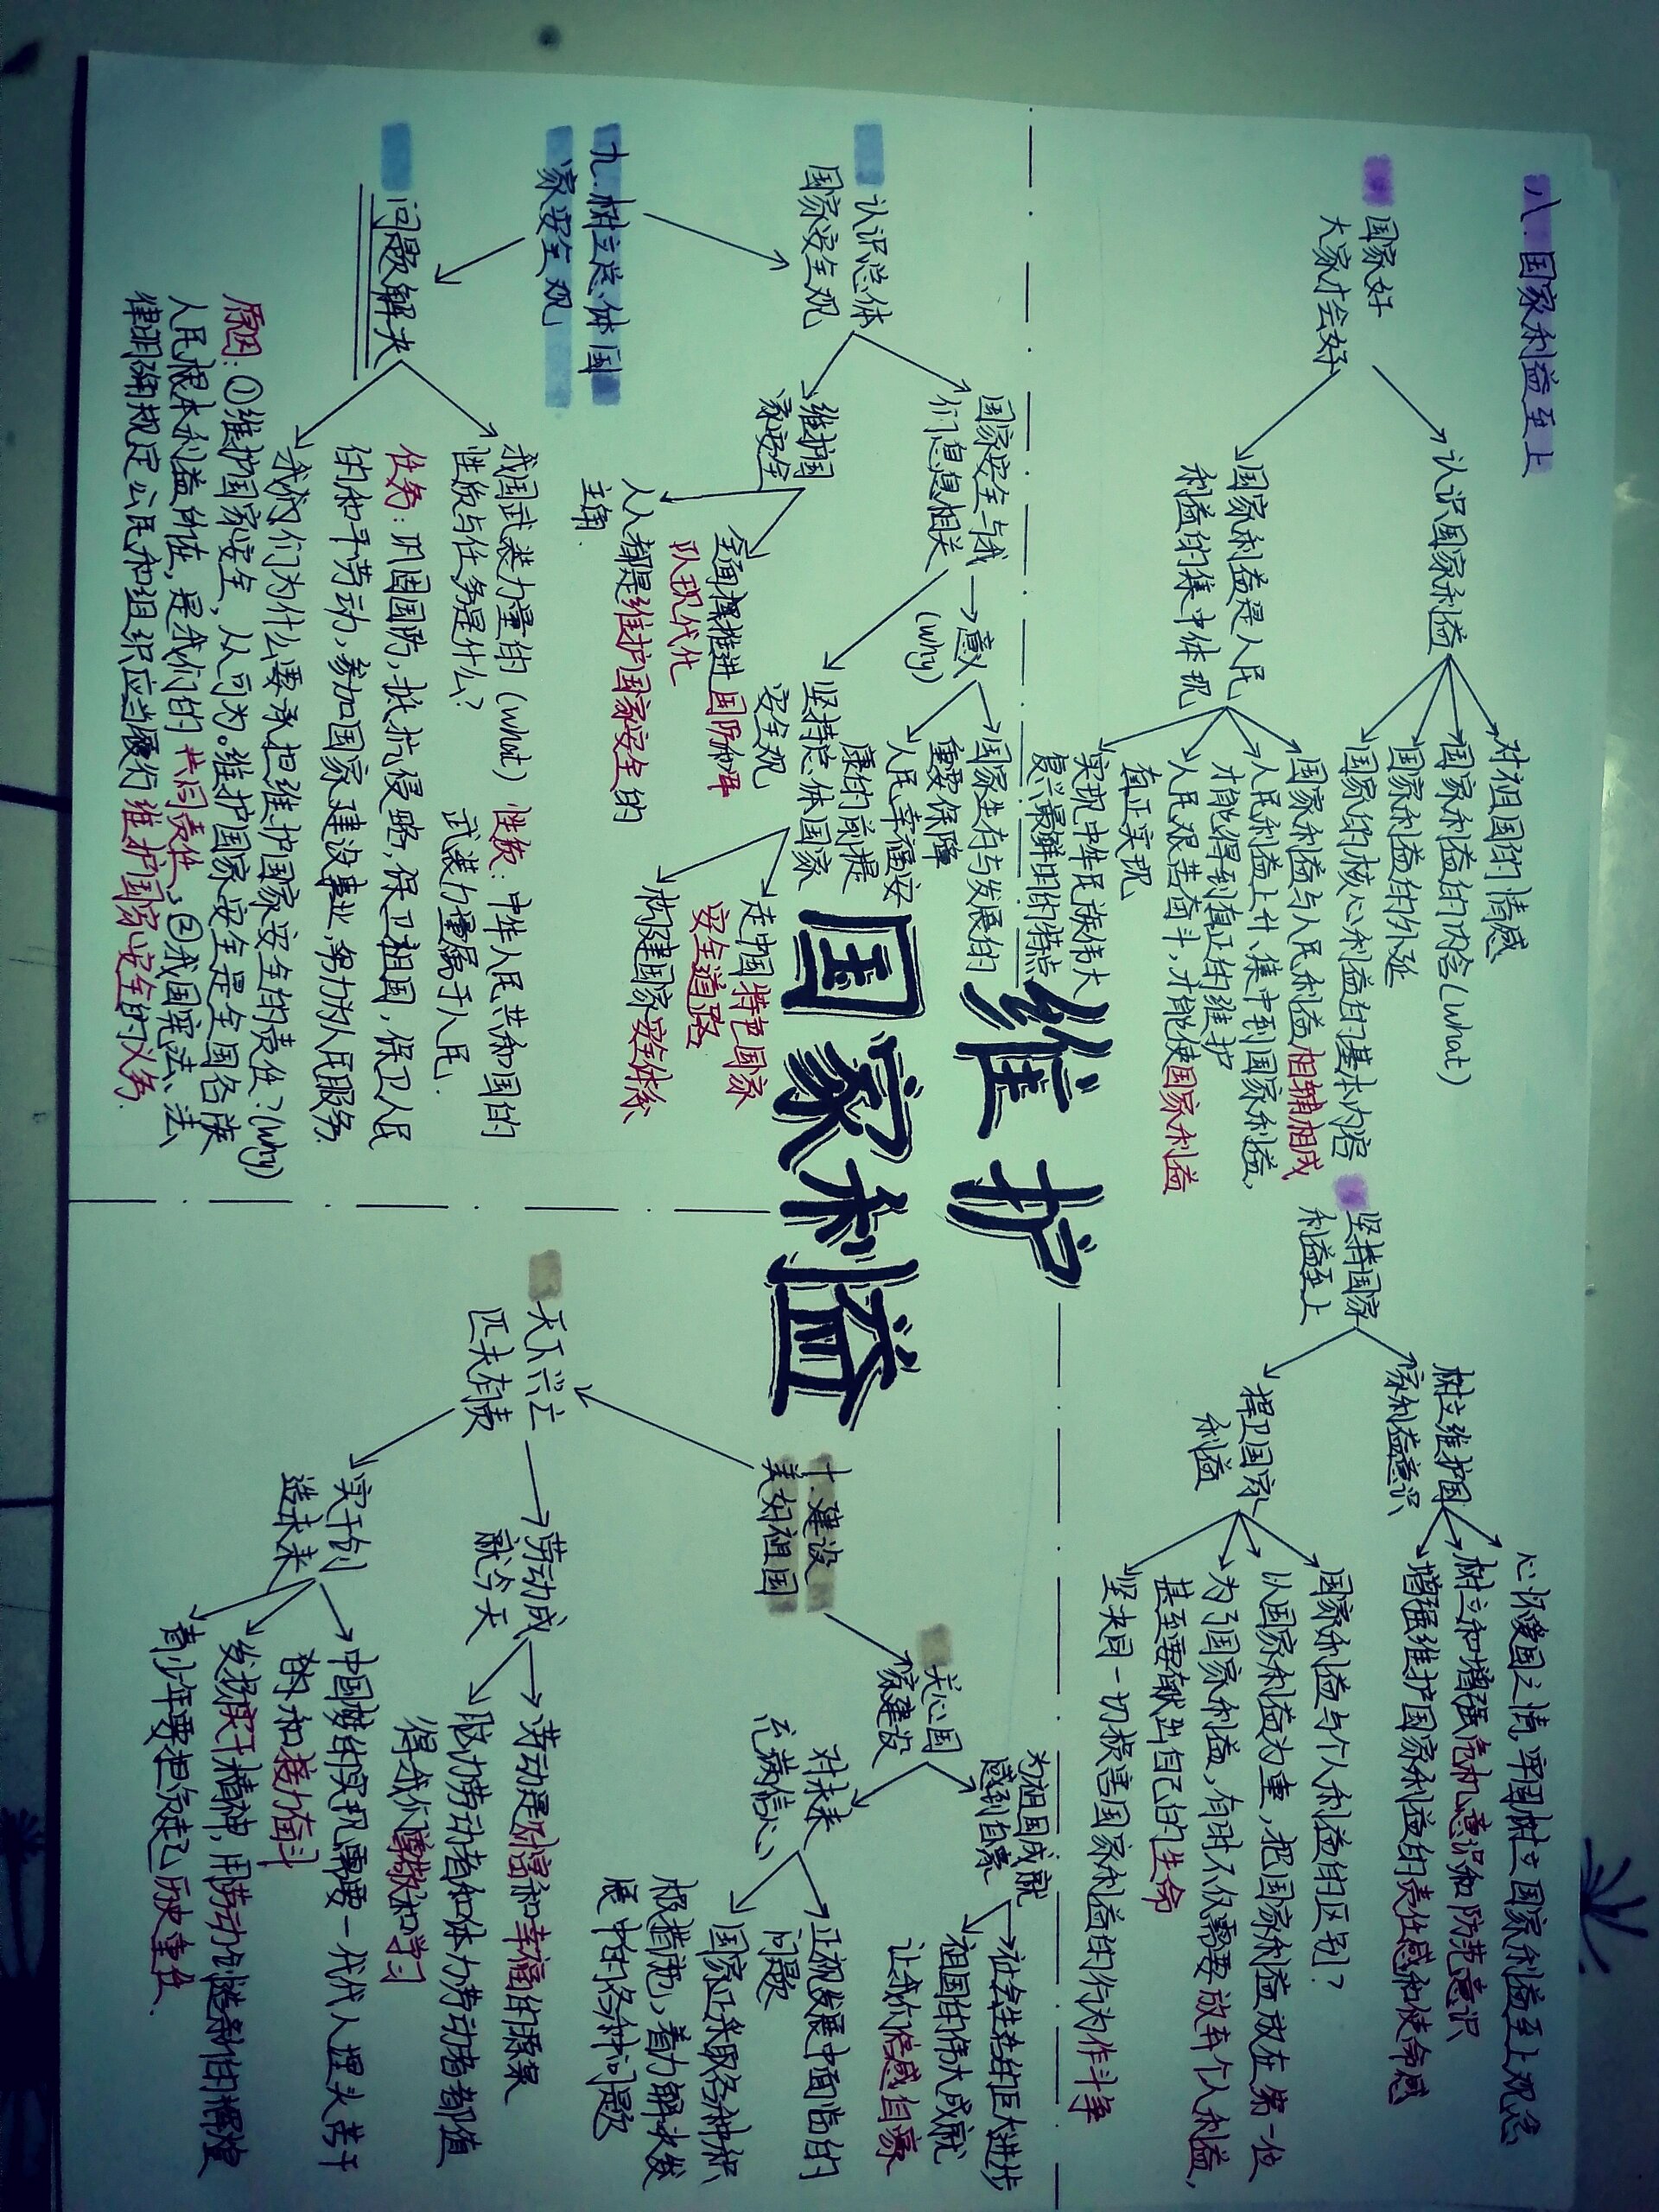 八.国家利益至上
国家好
大家才会好
认识国家利益
对祖国的情感
国家利益的内含(what)
国家利益的外延
国家的核心利益的基本内容
国家利益是人民
利益的集中体现
国家利益与人民利益相辅相成
人民利益上升、集中到国家利益,
才能得到真正的维护
人民艰苦奋斗,才能使国家利益
真正实现
实现中华民族伟大
复兴最鲜明的特点
坚持国家
利益至上
树立维护国
家利益意识
心怀爱国之情,牢固树立国家利益至上观念
树立和增强危机意识和防范意识
增强维护国家利益的责任感和使命感
捍卫国家
利益
国家利益与个人利益的区别?
以国家利益为重,把国家利益放在第一位
为了国家利益,有时不仅需要放弃个人利益,
甚至要献出自己的生命
坚决同一切损害国家利益的行为作斗争
维护
国家利益
九.树立总体国
家安全观
认识总体
国家安全观
国家安全与我
们息息相关
意义
(why)
国家生存与发展的
重要保障
人民幸福安
康的前提
坚持总体国家
安全观
走中国特色国家
安全道路
构建国家安全体系
维护国
家安全
全面推进国防和军
队现代化
人人都是维护国家安全的
主角.
问题解决
我国武装力量的(what)
性质与任务是什么?
性质:中华人民共和国的
武装力量属于人民.
任务:巩固国防,抵抗侵略,保卫祖国,保卫人民
的和平劳动,参加国家建设事业,努力为人民服务.
我们为什么要承担维护国家安全的责任?(why)
原因:①维护国家安全,人人可为。维护国家安全是全国各族
人民根本利益所在,是我们的共同责任,②我国宪法、法
律明确规定公民和组织应当履行维护国家安全的义务.
十.建设
美好祖国
关心国
家建设
为祖国成就
感到自豪
社会生态的巨大进步
祖国的伟大成就
让我们倍感自豪
对未来
充满信心
正视发展中面临的
问题
国家正采取各种积
极措施,着力解决发
展中的各种问题
天下兴亡
匹夫有责
劳动成
就今天
劳动是财富和幸福的源泉
脑力劳动者和体力劳动者都值
得我们尊敬和学习
实干创
造未来
中国梦的实现需要一代代人埋头苦干
和接力奋斗
发扬实干精神,用劳动创造新的辉煌
青少年要担负起历史重任.